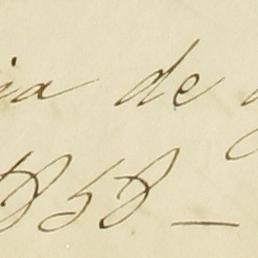 ia de
1858